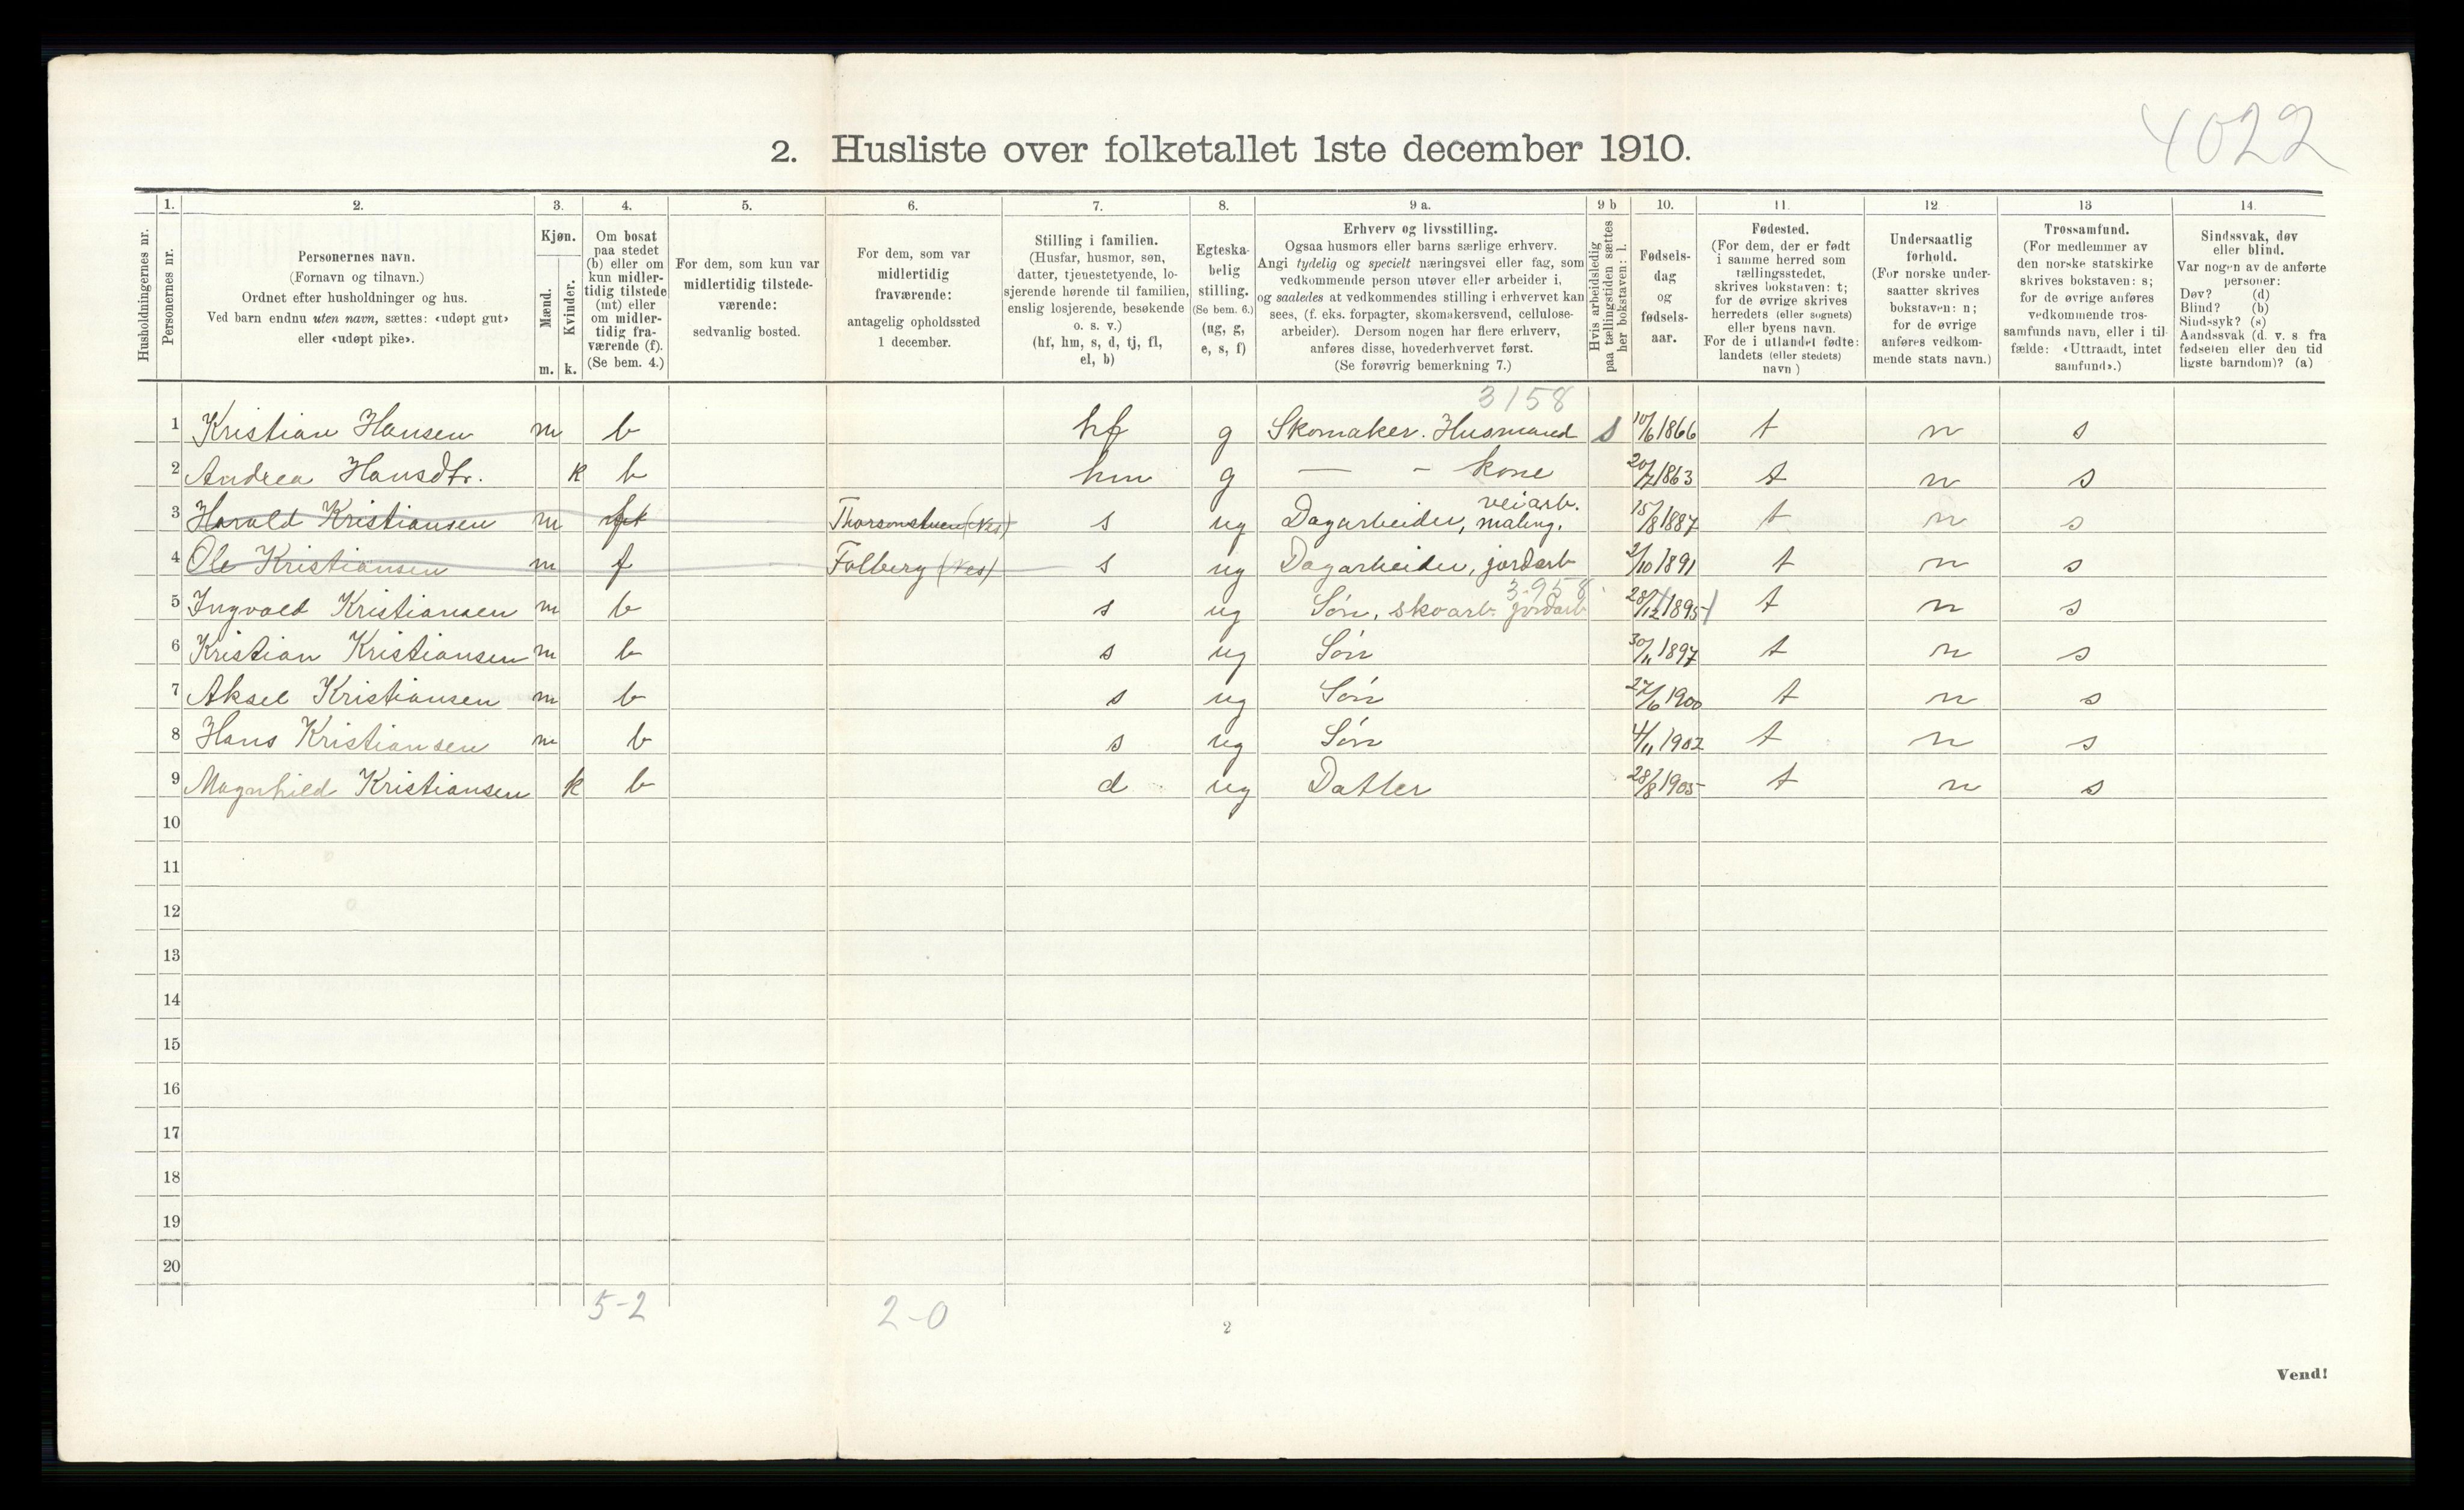 4022
2. Husliste over folketallet 1ste december 1910.
Husholdningernes nr.
1. Personernes nr.
2. Personernes navn.
(Fornavn og tilnavn.)
Ordnet efter husholdninger og hus.
Ved barn endnu uten navn, sættes: «udøpt gut»
eller «udøpt pike».
3. Kjøn.
Mænd. Kvinder.
m. k.
4. Om bosat
paa stedet
(b) eller om
kun midler-
tidig tilstede
(mt) eller
om midler-
tidig fra-
værende (f).
(Se bem. 4.)
5. For dem, som kun var
midlertidig tilstede-
værende:
sedvanlig bosted.
6. For dem, som var
midlertidig
fraværende:
antagelig opholdssted
1 december.
7. Stilling i familien.
(Husfar, husmor, søn,
datter, tjenestetyende, lo-
sjerende hørende til familien,
enslig losjerende, besøkende
o. s. v.)
(hf, hm, s, d, tj, fl,
el, b)
8. Egteska-
belig
stilling.
(Se bem. 6.)
(ug, g,
e, s, f)
9 a. Erhverv og livsstilling.
Ogsaa husmors eller barns særlige erhverv.
Angi tydelig og specielt næringsvei eller fag, som
vedkommende person utøver eller arbeider i,
og saaledes at vedkommendes stilling i erhvervet kan
sees, (f. eks. forpagter, skomakersvend, cellulose-
arbeider). Dersom nogen har flere erhverv,
anføres disse, hovederhvervet først.
(Se forøvrig bemerkning 7.)
9 b Hvis arbeidsledig
paa tællingstiden sættes
her bokstaven: l.
10. Fødsels-
dag
og
fødsels-
aar.
11. Fødested.
(For dem, der er født
i samme herred som
tællingsstedet,
skrives bokstaven: t;
for de øvrige skrives
herredets (eller sognets)
eller byens navn.
For de i utlandet fødte:
landets (eller stedets)
navn)
12. Undersaatlig
forhold.
(For norske under-
saatter skrives
bokstaven: n;
for de øvrige
anføres vedkom-
mende stats navn.)
13 Trossamfund.
(For medlemmer av
den norske statskirke
skrives bokstaven: s;
for de øvrige anføres
vedkommende tros-
samfunds navn, eller i til-
fælde: «Uttraadt, intet
samfund».)
14. Sindssvak, døv
eller blind.
Var nogen av de anførte
personer:
Døv? (d)
Blind? (b)
Sindssyk? (s)
Aandssvak (d. v. s fra
fødselen eller den tid
ligste barndom)? (a)
3158
1 Kristian Hansen m b hf g Skomaker. Husmand s 10/6 1866 t n s
2 Andrea Hansdtr. k b hm g — - kone 20/7 1863 t n s
veiarb.
3 Harald Kristiansen m Thorsonstuen (Nes) s ug Dagarbeider, maling. 15/8 1887 t n s
4 Ole Kristiansen m f Folberg (Nes) s ug Dagarbeider, jordarb 2/10 1891 t n s
3-958
5 Ingvald Kristiansen m b s ug Søn, skoarb. jordarb 28/12 1895 t n s
6 Kristian Kristiansen m b s ug Søn 30/11 1897 t n s
7 Aksel Kristiansen m b s ug Søn 27/6 1900 t n s
8 Hans Kristiansen m b s ug Søn 4/11 1902 t n s
9 Magnhild Kristiansen k b d ug Datter 28/8 1905 t n s
10
11
12
13
14
15
16
17
18
19
20
5-2
2-0
2
Vend!